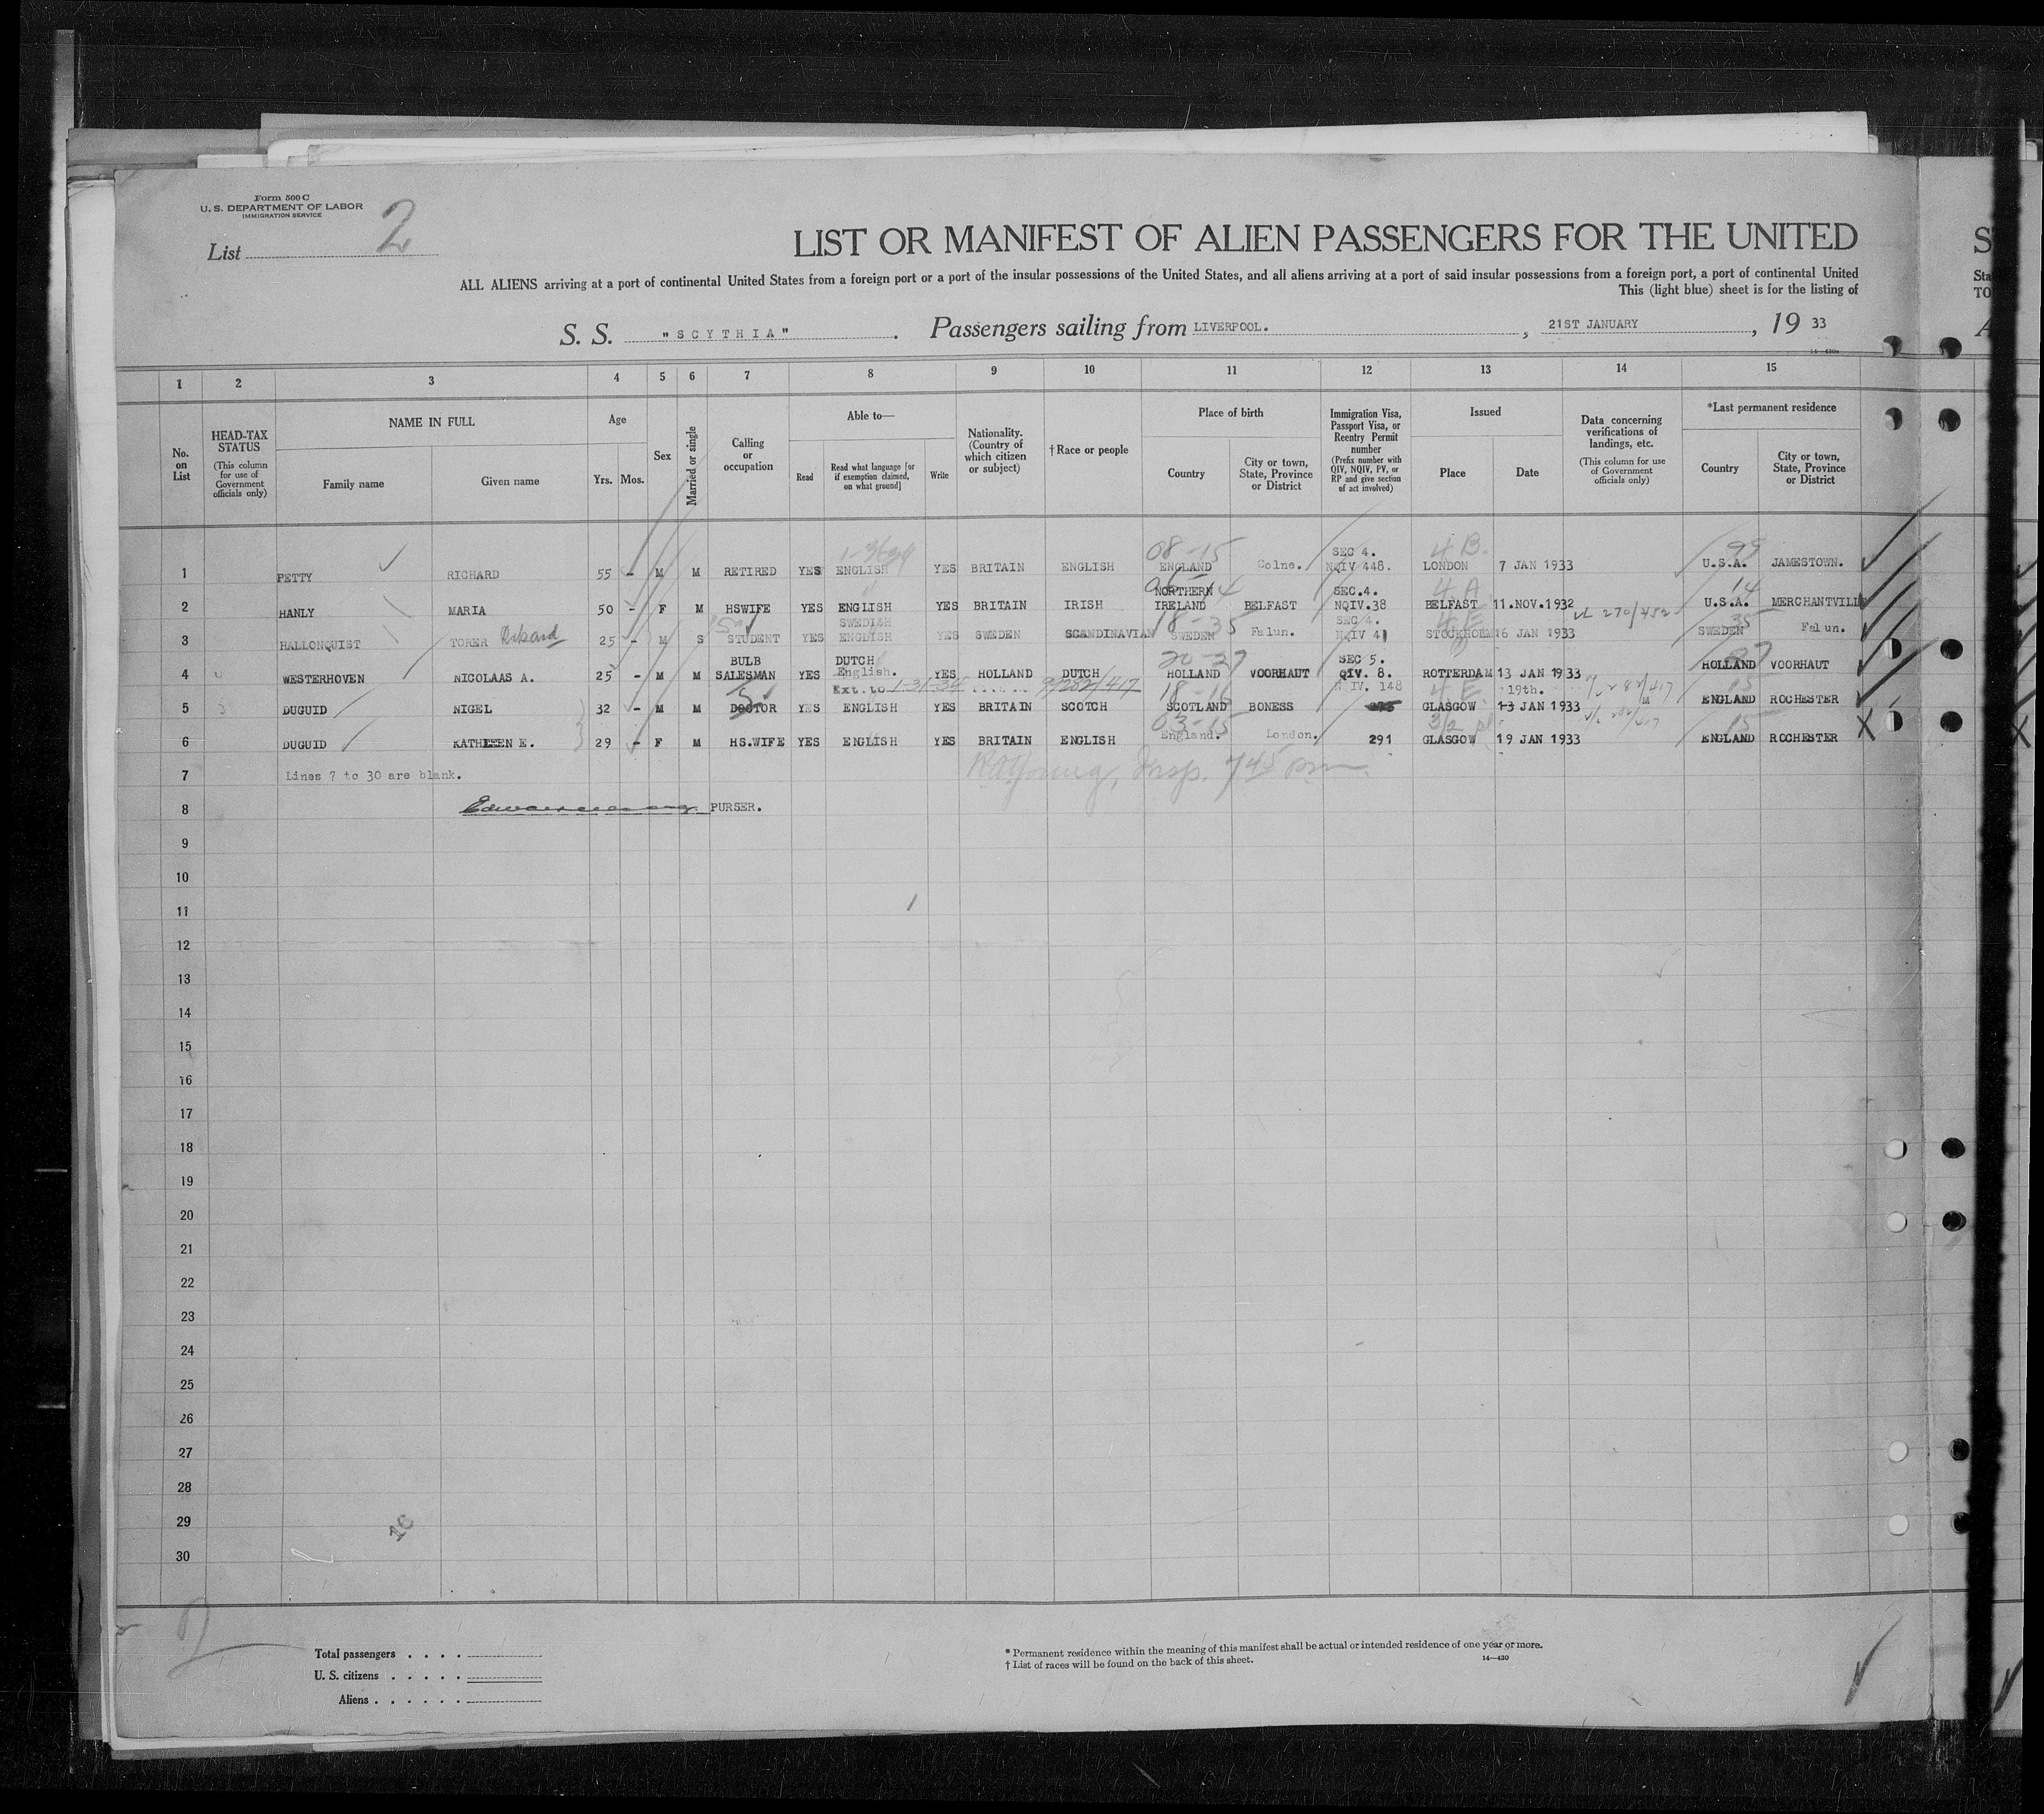 Form 500 C
U. S. DEPARTMENT OF LABOR
IMMIGRATION SERVICE
List 2
LIST OR MANIFEST OF ALIEN PASSENGERS FOR THE UNITED
ALL ALIENS arriving at a port of continental United States from a foreign port or a port of the insular possessions of the United States, and all aliens arriving at a port of said insular possessions from a foreign port, a port of continental United
This (light blue) sheet is for the listing of
S. S. "SCYTHIA". Passengers sailing from LIVERPOOL. , 21ST JANUARY , 19 33
1 2 3 4 5 6 7 8 9 10 11 12 13 14 15
No. on List
HEAD-TAX STATUS (This column for use of Government officials only)
NAME IN FULL
Family name Given name
Age
Yrs. Mos.
Sex
Married or single
Calling or occupation
Able to—
Read Read what language [or if exemption claimed, on what ground] Write
Nationality. (Country of which citizen or subject)
† Race or people
Place of birth
Country City or town, State, Province or District
Immigration Visa, Passport Visa, or Reentry Permit number (Prefix number with QIV, NQIV, PV, or RP and give section of act involved)
Issued
Place Date
Data concerning verifications of landings, etc. (This column for use of Government officials only)
*Last permanent residence
Country City or town, State, Province or District
08-15 SEC 4. 4 B. 99
1 PETTY RICHARD 55 - M M RETIRED YES ENGLISH YES BRITAIN ENGLISH ENGLAND Colne. NQIV 448. LONDON 7 JAN 1933 U.S.A. JAMESTOWN.
NORTHERN SEC.4. 4 A 14
2 HANLY MARIA 50 - F M HSWIFE YES ENGLISH YES BRITAIN IRISH IRELAND BELFAST NQIV.38 BELFAST 11.NOV.1932 U.S.A. MERCHANTVILLE
SWEDISH 18-35 SEC 4. 4 E 35
3 HALLONQUIST TORER 25 - M S STUDENT YES ENGLISH YES SWEDEN SCANDINAVIAN SWEDEN Falun. NQIV 41 STOCKHOLM 16 JAN 1933 SWEDEN Falun.
BULB DUTCH 20-27 SEC 5. 27
4 WESTERHOVEN NICOLAAS A. 25 - M M SALESMAN YES English. YES HOLLAND DUTCH HOLLAND VOORHAUT QIV. 8. ROTTERDAM 13 JAN 1933 HOLLAND VOORHAUT
Ext. to 1-31-34 18-15 148 4 E 19th. 15
5 DUGUID NIGEL 32 - M M DOCTOR YES ENGLISH YES BRITAIN SCOTCH SCOTLAND BONESS GLASGOW 13 JAN 1933 ENGLAND ROCHESTER
03-15 3/2 15
6 DUGUID KATHLEEN E. 29 - F M HS.WIFE YES ENGLISH YES BRITAIN ENGLISH England. London. 291 GLASGOW 19 JAN 1933 ENGLAND ROCHESTER
7 Lines 7 to 30 are blank. Insp. 7 45 pm
8 PURSER.
9
10
11
12
13
14
15
16
17
18
19
20
21
22
23
24
25
26
27
28
29
30
16
2
Total passengers
U. S. citizens
Aliens
* Permanent residence within the meaning of this manifest shall be actual or intended residence of one year or more.
† List of races will be found on the back of this sheet.
14—430